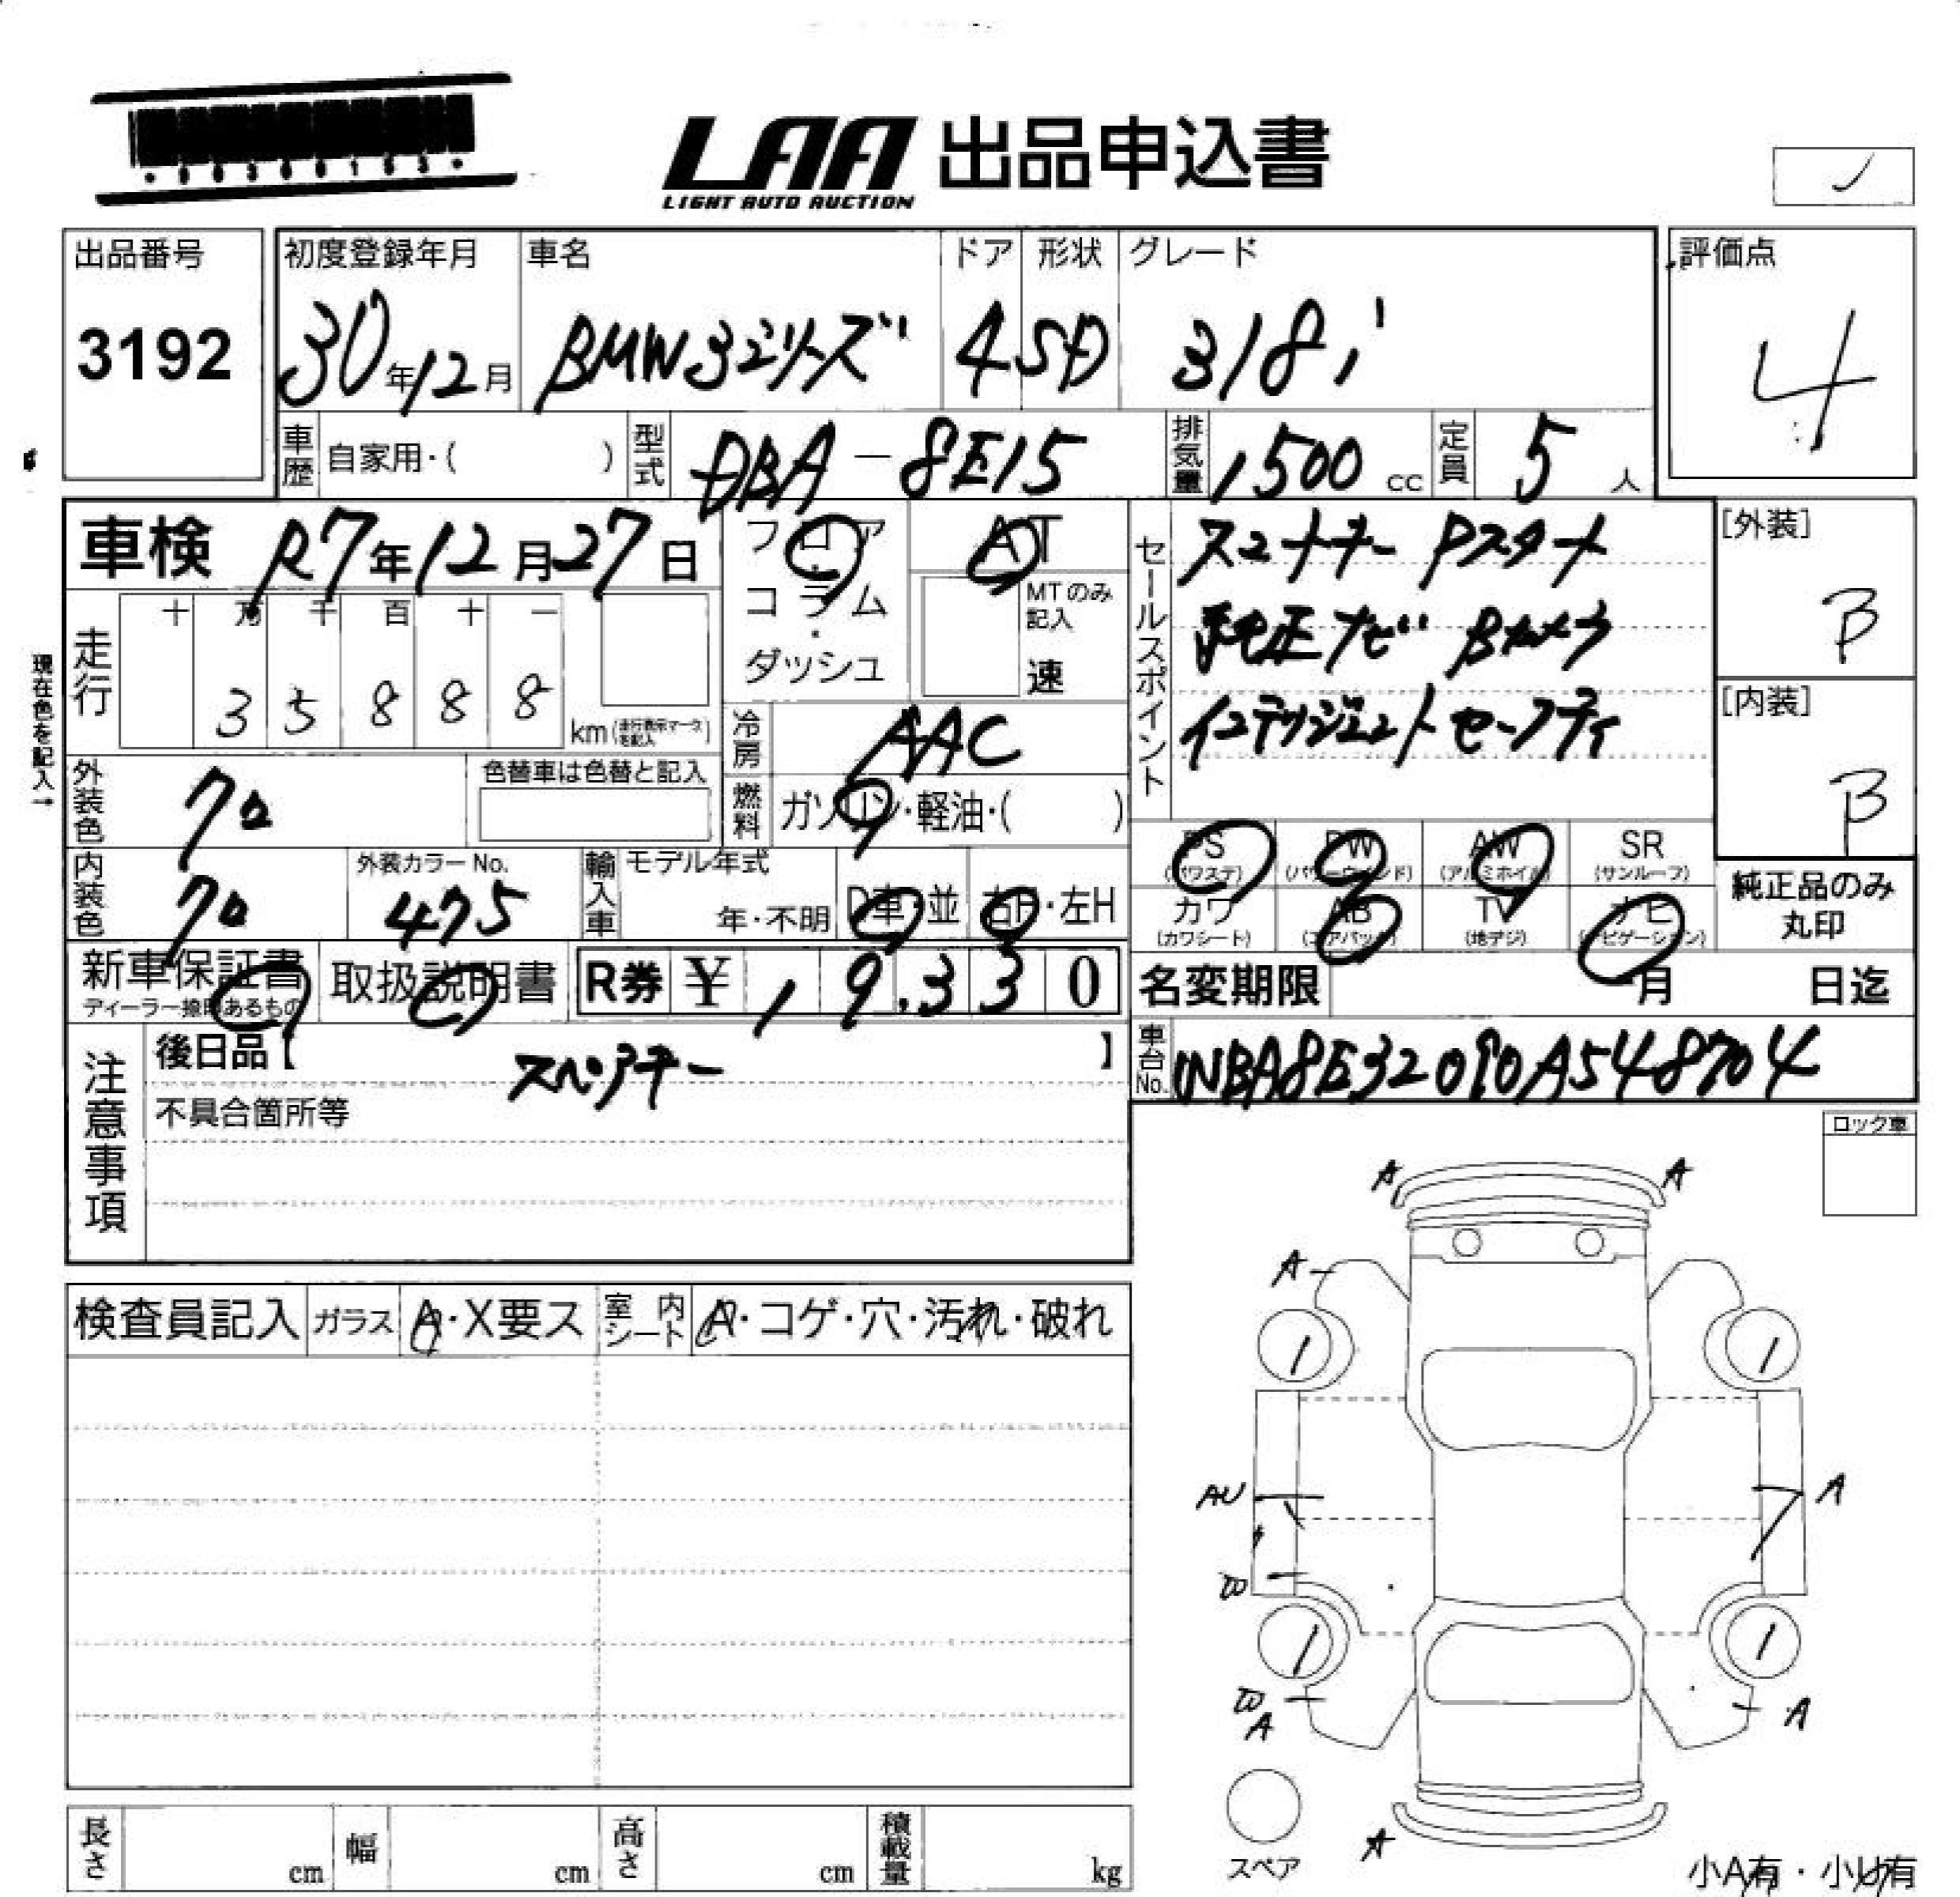 LAA 出品申込書
LIGHT AUTO AUCTION
出品番号
3192
初度登録年月
30年12月
車名
BMW3シリーズ
ドア
4
形状
SD
グレード
318i
評価点
4
車歴
自家用・( )
型式
DBA-8E15
排気量
1500 cc
定員
5人
車検 R7年12月27日
フロア
コラム
・
ダッシュ
AT
MTのみ記入
速
セールスポイント
スマートキー Pスタート
純正ナビ Bカメラ
インテリジェントセーフティ
[外装]
B
[内装]
B
現在色を記入→
走行
十 万 千 百 十 一
3 5 8 8 8
km(走行表示マークを記入)
冷房
AAC
燃料
ガソリン・軽油・( )
外装色
クロ
色替車は色替と記入
内装色
クロ
外装カラーNo.
475
輸入車
モデル年式
年・不明
D車・並
右H・左H
PS
(パワステ)
PW
(パワーウインド)
AW
(アルミホイル)
SR
(サンルーフ)
カワ
(カワシート)
AB
(エアバック)
TV
(地デジ)
ナビ
(ナビゲーション)
純正品のみ
丸印
新車保証書
ディーラー捺印あるもの
取扱説明書
R券 ¥ 19,330
名変期限 月 日迄
注意事項
後日品【 スペアキー 】
不具合箇所等
車台No.
WBA8E32090A548704
ロック車
検査員記入
ガラス
A・X要ス
室内シート
A・コゲ・穴・汚れ・破れ
A
A
A
AU
A
B
B
A
A
A
1
1
1
1
スペア
小A有・小U有
長さ cm
幅 cm
高さ cm
積載量 kg